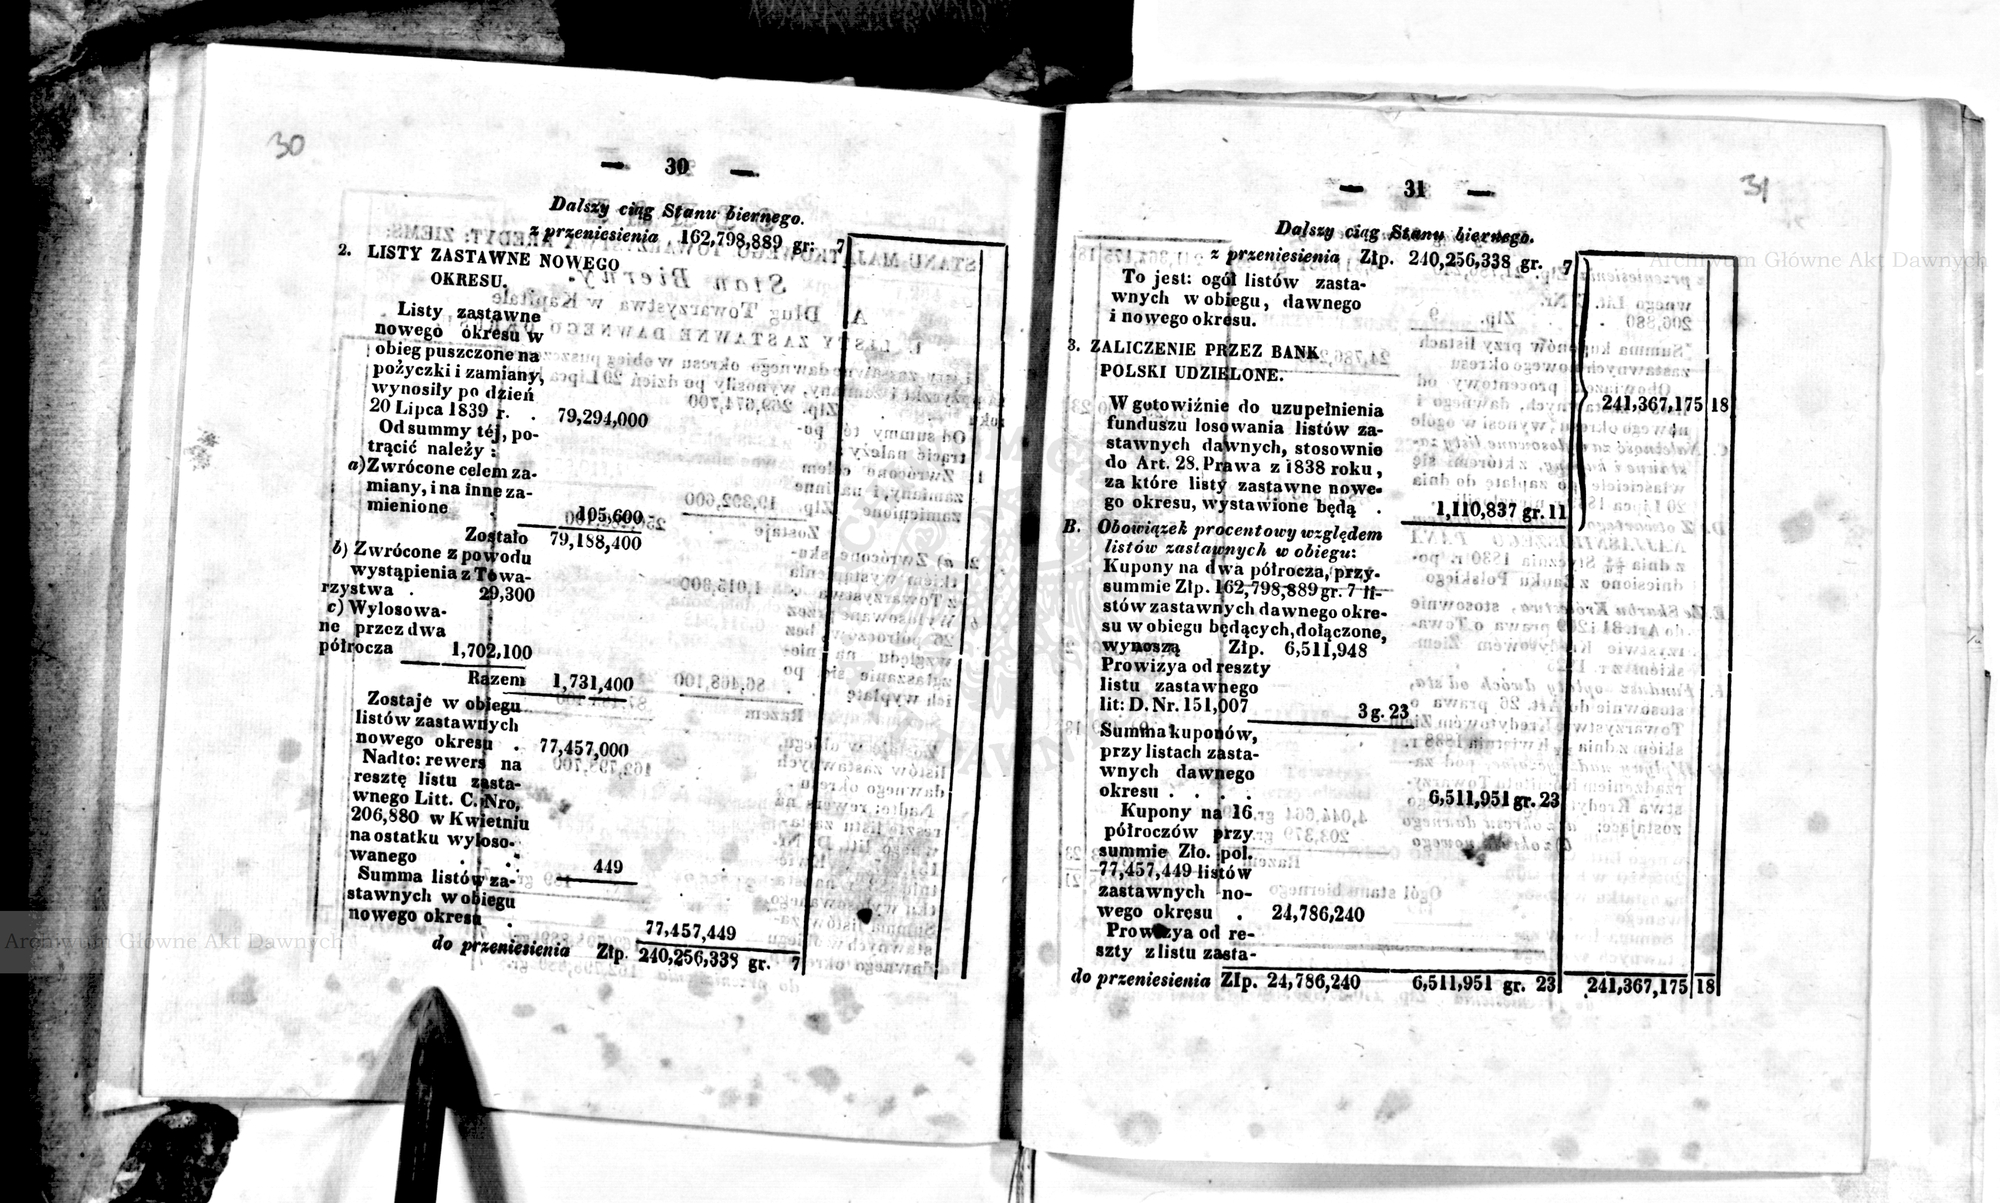 30
— 30 —
Dalszy ciąg Stanu biernego.
z przeniesienia 162,798,889 gr: 7
2. LISTY ZASTAWNE NOWEGO
OKRESU.
Listy zastawne
nowego okresu w
obieg puszczone na
pożyczki i zamiany,
wynosiły po dzień
20 Lipca 1839 r. . 79,294,000
Od summy téj, po-
trącić należy :
a) Zwrócone celem za-
miany, i na inne za-
mienione . 105,600
Zostało 79,188,400
b) Zwrócone z powodu
wystąpienia z Towa-
rzystwa . 29,300
c) Wylosowa-
ne przez dwa
półrocza 1,702,100
Razem 1,731,400
Zostaje w obiegu
listów zastawnych
nowego okresu . 77,457,000
Nadto: rewers na
resztę listu zasta-
wnego Litt. C. Nro,
206,880 w Kwietniu
na ostatku wyloso-
wanego . . . 449
Summa listów za-
stawnych w obiegu
nowego okresu . 77,457,449
do przeniesienia Złp. 240,256,338 gr. 7
31
— 31 —
Dalszy ciąg Stanu biernego.
z przeniesienia Złp. 240,256,338 gr. 7
To jest: ogół listów zasta-
wnych w obiegu, dawnego
i nowego okresu.
3. ZALICZENIE PRZEZ BANK
POLSKI UDZIELONE.
241,367,175 18
W gotowiźnie do uzupełnienia
funduszu losowania listów za-
stawnych dawnych, stosownie
do Art. 28. Prawa z 1838 roku,
za które listy zastawne nowe-
go okresu, wystawione będą . 1,110,837 gr. 11
B. Obowiązek procentowy względem
listów zastawnych w obiegu:
Kupony na dwa półrocza, przy-
summie Złp. 162,798,889 gr. 7 li-
stów zastawnych dawnego okre-
su w obiegu będących, dołączone,
wynoszą Złp. 6,511,948
Prowizya od reszty
listu zastawnego
lit: D. Nr. 151,007 3 g. 23
Summa kuponów,
przy listach zasta-
wnych dawnego
okresu . . . . 6,511,951 gr. 23
Kupony na 16
półroczów przy
summie Zło. pol.
77,457,449 listów
zastawnych no-
wego okresu . 24,786,240
Prowizya od re-
szty z listu zasta-
do przeniesienia Złp. 24,786,240 6,511,951 gr. 23 241,367,175 18
Archiwum Główne Akt Dawnych
Archiwum Główne Akt Dawnych